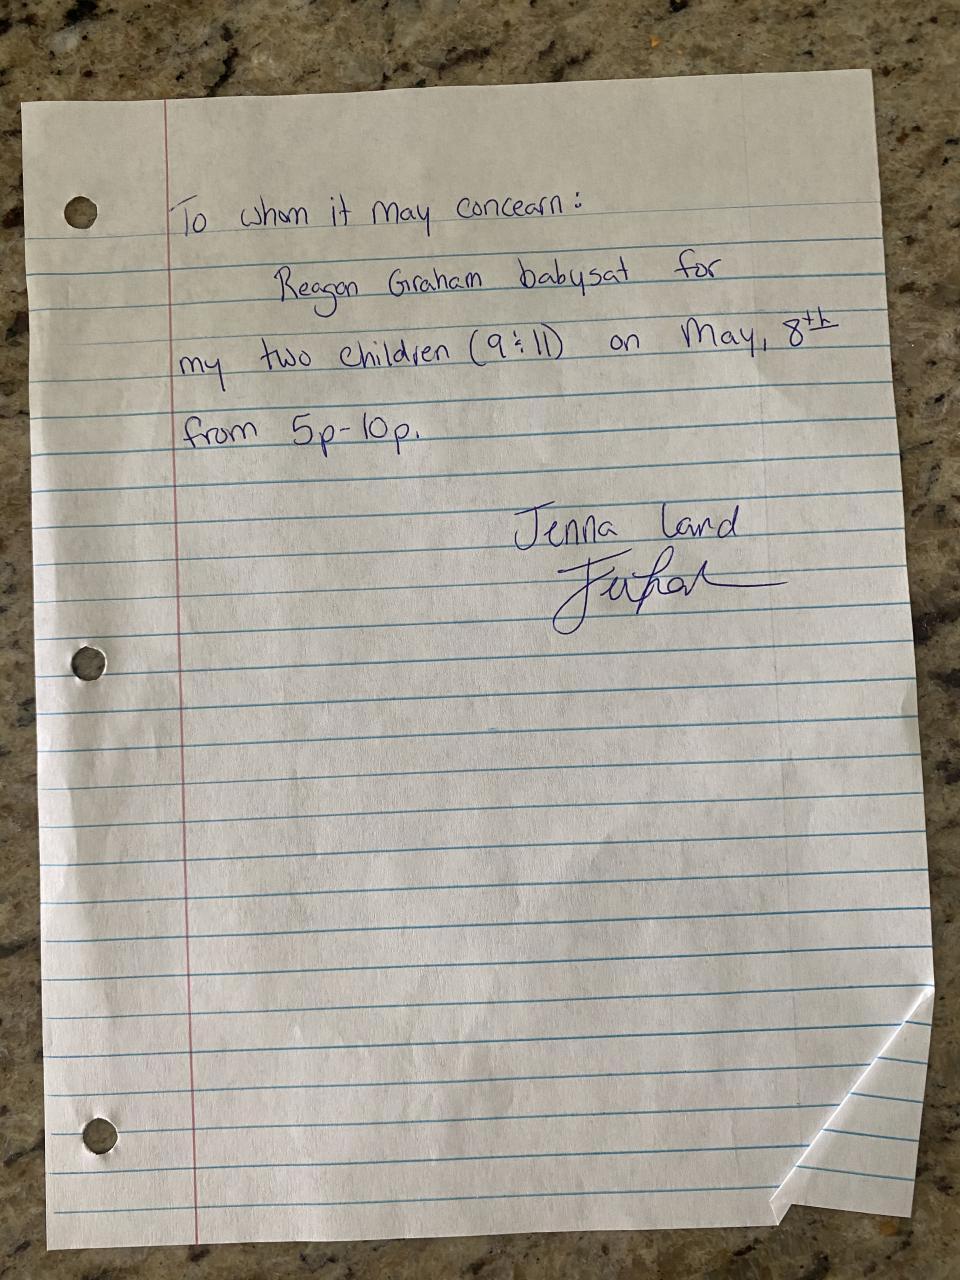 To whom it may concearn:
Reagan Graham babysat for
my two children (9 & 11) on May, 8th
from 5p-10p.
Jenna Land